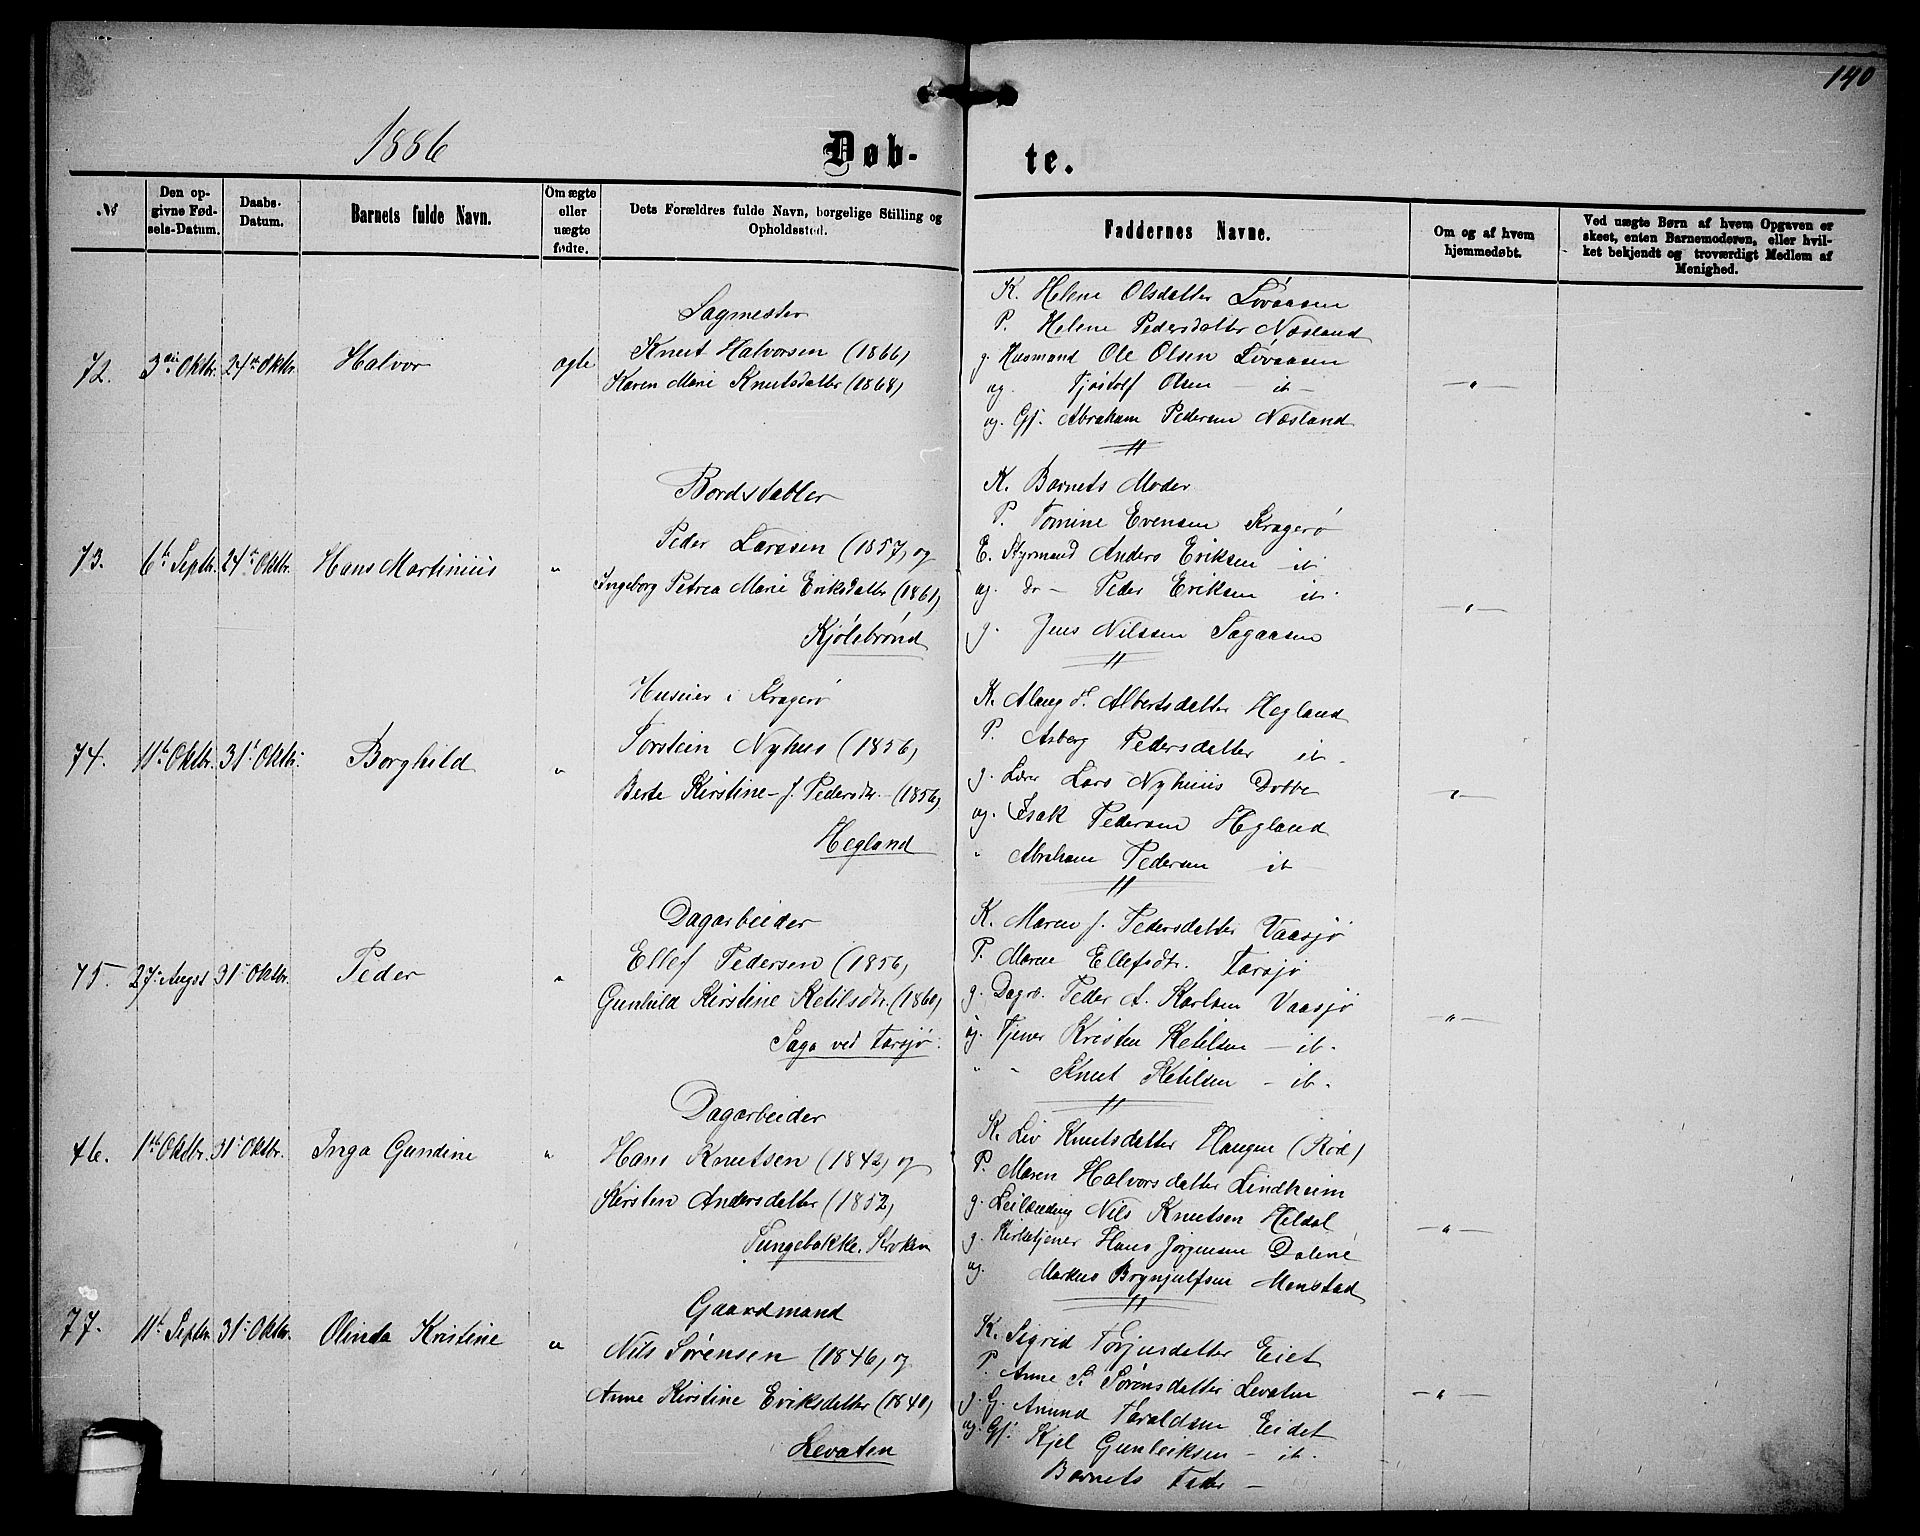 140
1886
Døb- te.
№
Den op-
givne Fød-
sels-Datum.
Daabs-
Datum.
Barnets fulde Navn.
Om ægte
eller
uægte
fødte.
Dets Forældres fulde Navn, borgelige Stilling og
Opholdssted.
Faddernes Navne.
Om og af hvem
hjemmedøbt.
Ved uægte Børn af hvem Opgaven er
skeet, enten Barnemoderen, eller hvil-
ket bekjendt og troværdigt Medlem af
Menighed.
72. 3die Oktbr. 24de Oktbr. Halvor ægte
Sagmester
Knut Halvorsen (1866)
Karen Marie Knutsdatter (1868)
K. Helene Olsdatter Lövaasen
P. Helene Pedersdatter Næsland
g. Husmand Ole Olsen Lövaasen
og. Tjöstolf Olsen - it -
og. Gf. Abraham Pedersen Næsland
- " -
73. 6te Septbr. 24de Oktbr. Hans Martinius "
Bordstabler
Peder Larssen (1857) og
Ingeborg Petrea Marie Eriksdatter (1861)
Kjölebrönd
K. Barnets Moder
P. Tomine Evensen Kragerø
E. Styrmand Anders Eriksen it
og. Do - Peder Eriksen it.
g. Jens Nilssen Sagaasen
- " -
74. 11te Oktbr. 31te Oktbr. Borghild "
Huseier i Kragerø
Torstein Nyhus (1856)
Berte Kirstine - f. Pedersdtr. - (1856)
Hegland
K. Albertsdatter Hegland
P. Asberg Pedersdatter it -
g. Lærer Lars Nyhuus Dobbe
og. Isak Pedersen Hegland
" Abraham Pedersen it
- " -
75. 27. Augst 31te Oktbr. Peder "
Dagarbeider
Ellef Pedersen (1856)
Gunhild Kirstine Ketilsdtr. (1860)
Saga ved Tarsjø.
K. Maren J. Pedersdatter Vaasjø
P. Maren Ellefsdtr. Tarsjø
g. Dagr. Peder A. Karlsen Vaasjø
og. Tjener Kristen Ketilsen - it.
" - Knut Ketilsen - it.
- " -
76. 1ste Oktbr. 31te Oktbr. Inga Gundine "
Dagarbeider
Hans Knutsen (1842) og
Kirsten Andersdatter (1852)
Tungebakke. Kroken
K. Liv Knutsdatter Haugen (Rød)
P. Maren Halvorsdatter Lindheim
g. Leilænding Nils Knutsen Heldal
g. Kirketjener Hans Jørgensen Dalene
og. Markus Brynjulfsen Menstad
- " -
77. 11te Septbr. 31te Oktbr. Olinda Kristine "
Gaardmand
Nils Sørensen (1846) og
Anne Kirstine Eriksdatter (1840)
Levaten
K. Sigrid Torjusdatter Eiet
P. Anne K. Sørensdatter Levaten
g. G. Anund Taraldsen Eidet
og. Gf. Kjel Gunleiksen - it.
Barnets Fader -
- " -